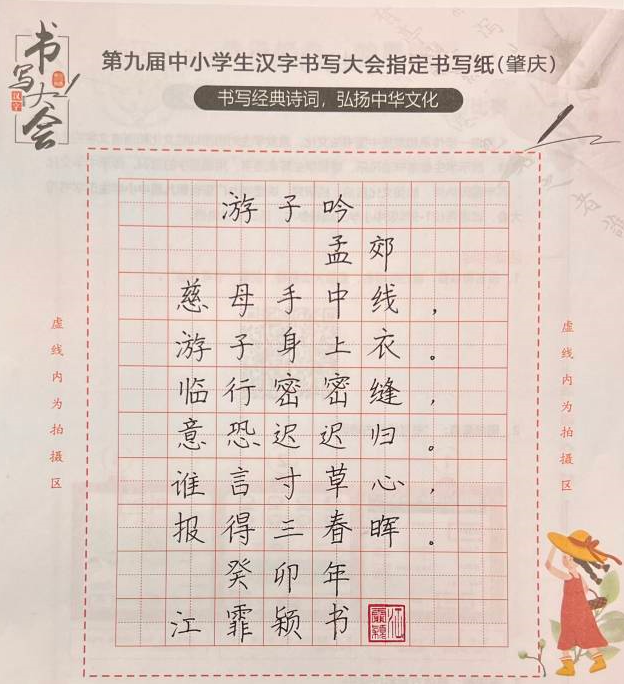 书写大会
汉字
第九届中小学生汉字书写大会指定书写纸(肇庆)
书写经典诗词，弘扬中华文化
游子吟
孟郊
慈母手中线，
游子身上衣。
临行密密缝，
意恐迟迟归。
谁言寸草心，
报得三春晖。
癸卯年
江霏颖书
虚线内为拍摄区
虚线内为拍摄区